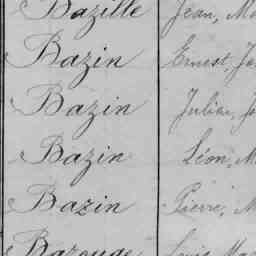 Bazille Jean, Ma
Bazin Ernest, Ja
Bazin Julien, Jo
Bazin Léon, M
Bazin Pierre, M
Bazouge Louis, Mar